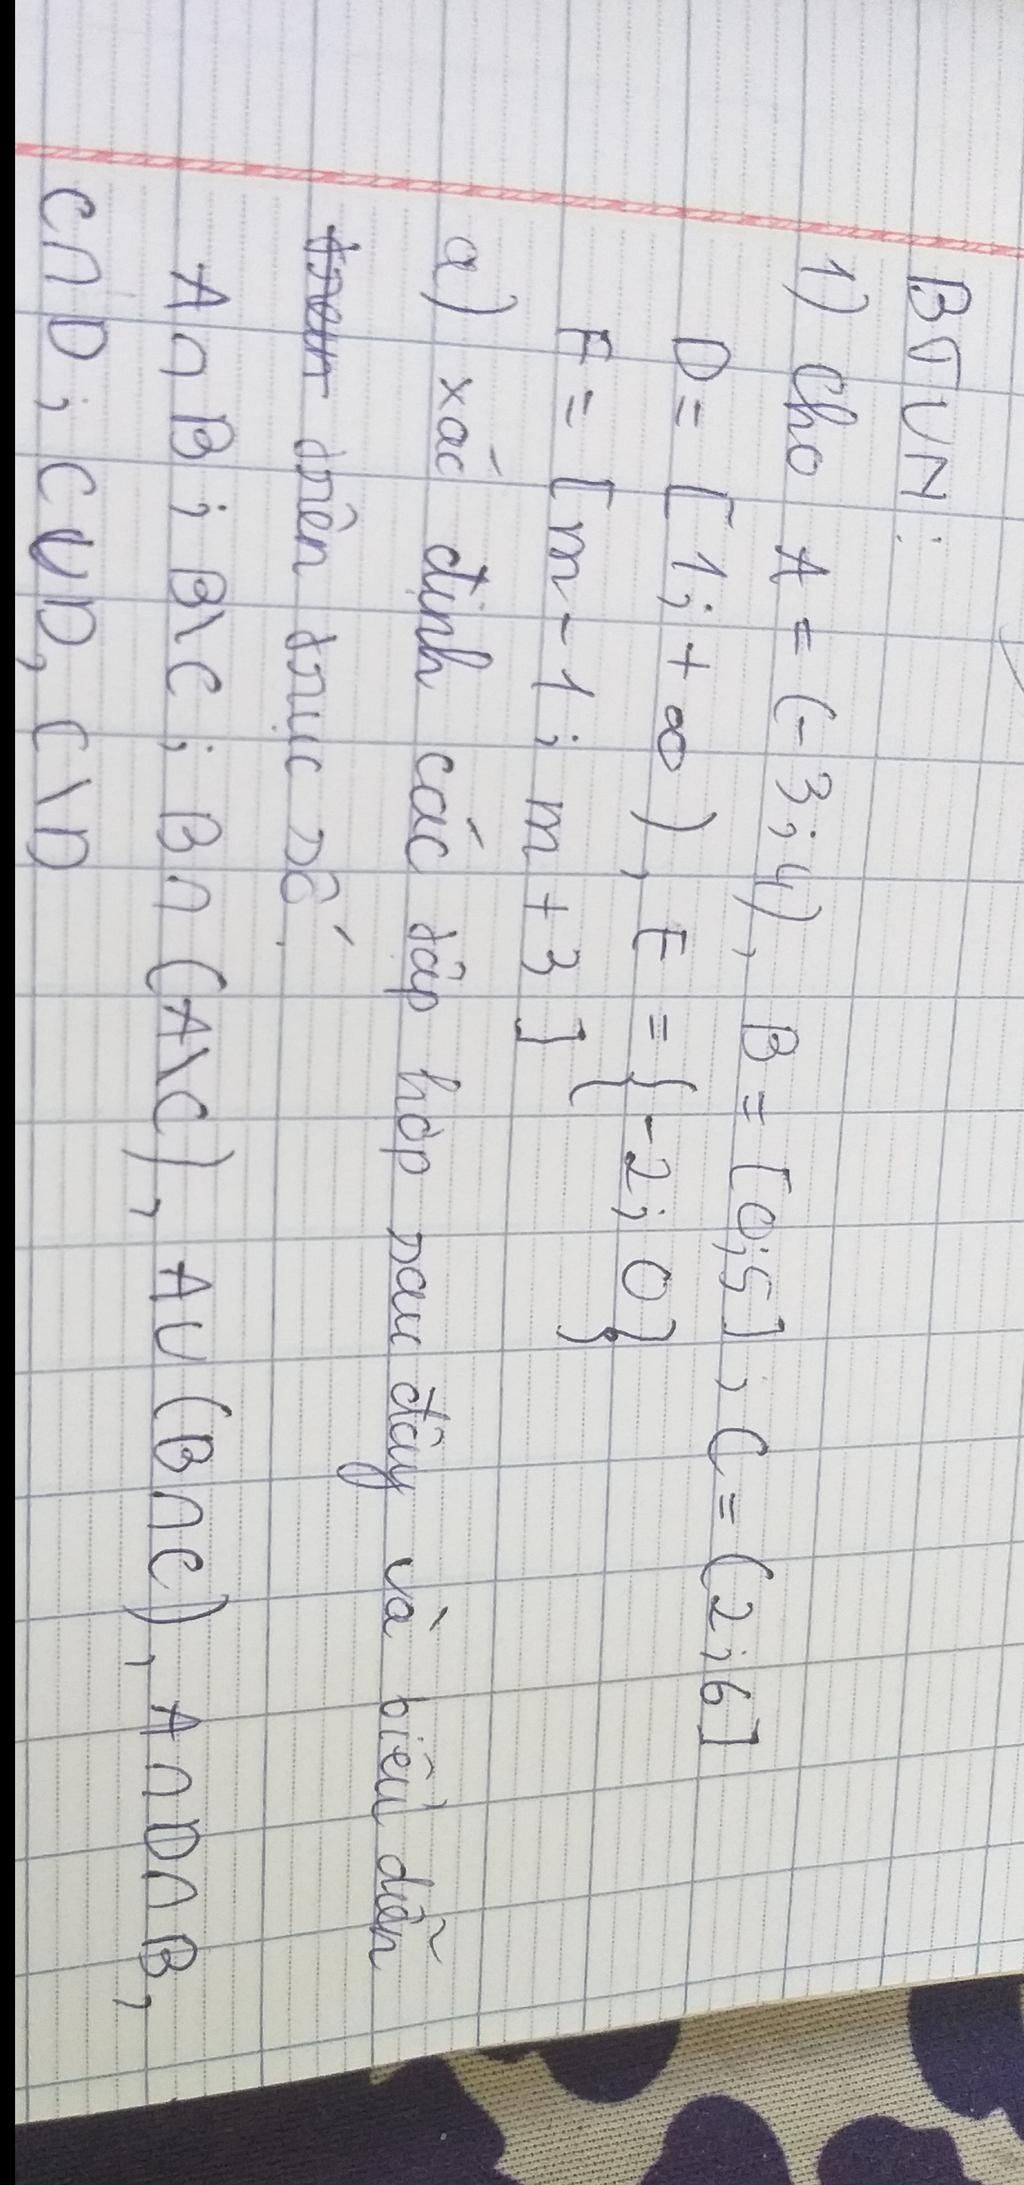 BTVN:
1) Cho A = (-3;4), B = [0;5], C = (2;6]
D = [1;+∞), E = {-2;0}
F = [m-1; m+3]
a) xác định các tập hợp sau đây và biểu diễn
trên trục số.
A∩B; B\C; B∩(A\C), A∪(B∩C), A∩D∩B,
C∩D; C∪D, C\D